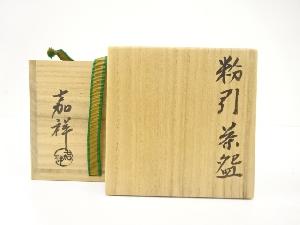 粉引茶盌
嘉祥